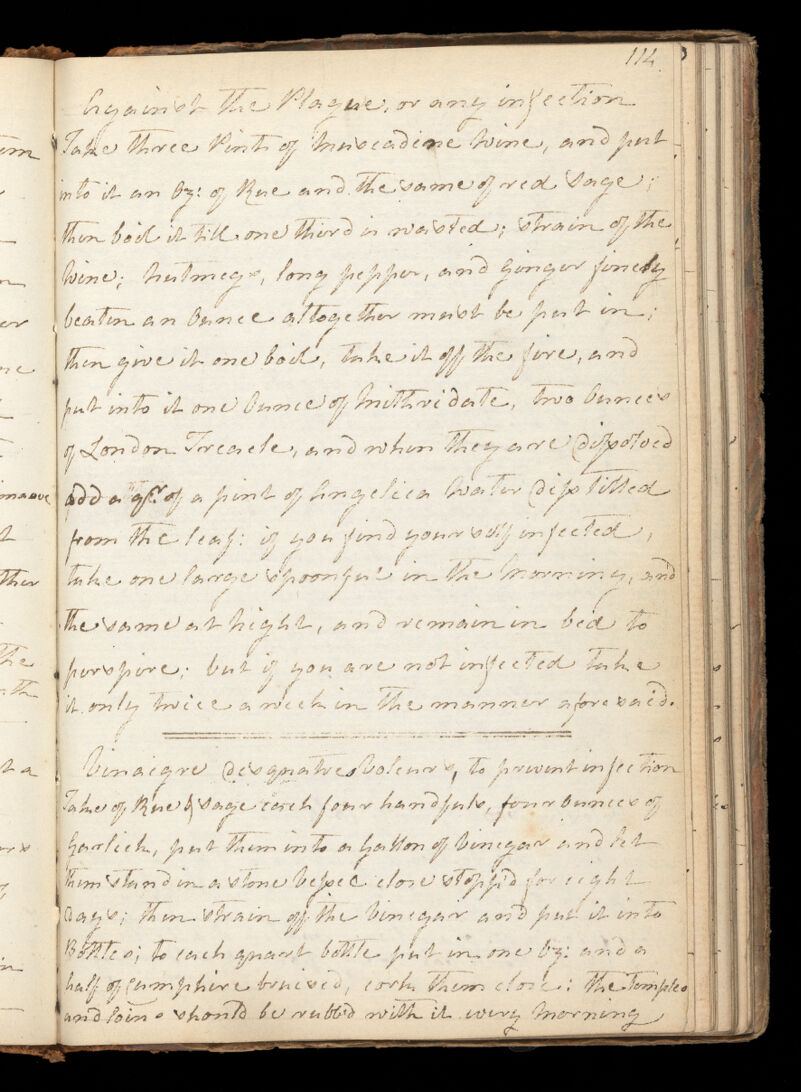 114
Against the Plague, or any infection
Take three Pints of Muscadine Wine, and put
into it an Oz: of Rue and the same of red Sage;
then boil it till one third is wasted; strain of the
Wine; Nutmegs, long pepper, and Ginger finely
beaten an Ounce altogether must be put in;
then give it one boil, take it off the fire, and
put into it one Ounce of Mithridate, two Ounces
of London Treacle, and when they are dissolved
add a qr. of a pint of Angelica Water distilled
from the leaf: if you find yourself infected,
take one large spoonful in the Morning, and
the same at Night, and remain in bed to
perspire; but if you are not infected take
it only twice a week in the manner aforesaid.
Vinaigre des quatre Voleurs, to prevent infection
Take of Rue & Sage each four handfuls, four Ounces of
Garlick, put them into a Gallon of Vinegar and let
them stand in a stone Vessel close stopp'd for eight
Days; then strain off the Vinegar and put it into
Bottles; to each quart bottle put in one Oz: and a
half of Camphire bruised, cork them close: the Temples
and Loins should be rubb'd with it every Morning